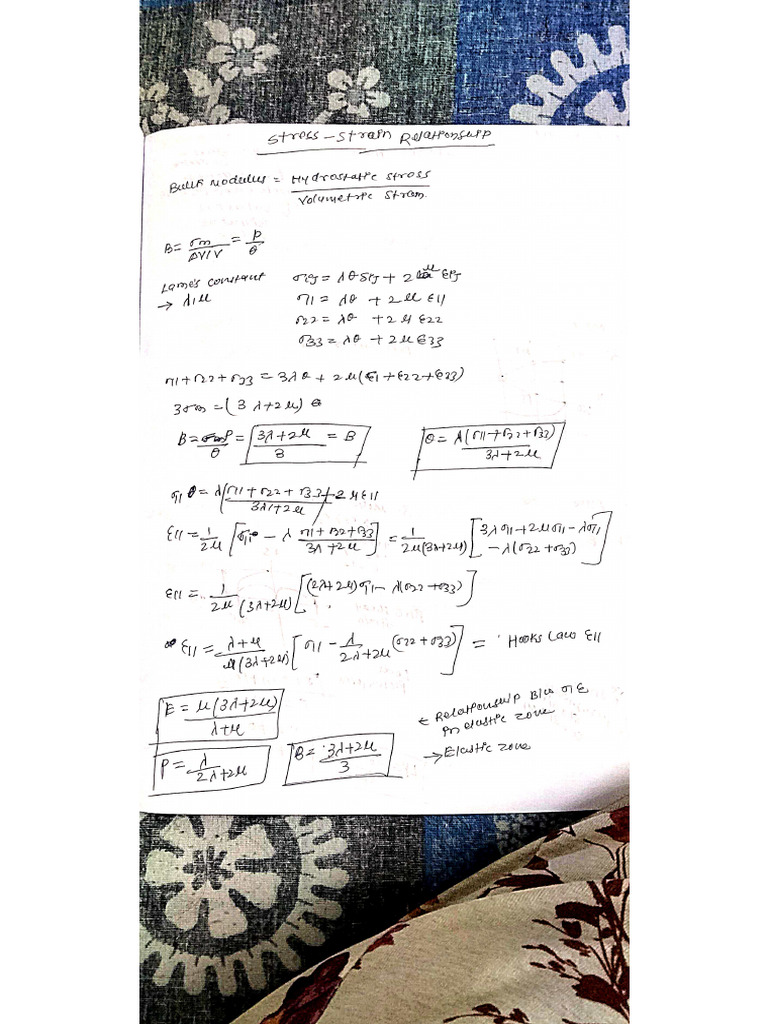 Stress - Strain Relationship
Bulk Modulus = Hydrostatic stress / Volumetric Strain.
B = σm / ΔV/V = P / θ
Lame's constant
→ λ, μ
σij = λθδij + 2μ εij
σ11 = λθ + 2μ ε11
σ22 = λθ + 2μ ε22
σ33 = λθ + 2μ ε33
σ11 + σ22 + σ33 = 3λθ + 2μ(ε11 + ε22 + ε33)
3σm = (3λ + 2μ) θ
B = P / θ = 3λ + 2μ / 3 = B
θ = λ(σ11 + σ22 + σ33) / 3λ + 2μ
σ11 = λ(σ11 + σ22 + σ33 / 3λ + 2μ) + 2μ ε11
ε11 = 1/2μ [σ11 - λ σ11 + σ22 + σ33 / 3λ + 2μ] = 1 / 2μ(3λ + 2μ) [3λσ11 + 2μσ11 - λσ11 - λ(σ22 + σ33)]
ε11 = 1 / 2μ(3λ + 2μ) [(2λ + 2μ)σ11 - λ(σ22 + σ33)]
ε11 = λ + μ / μ(3λ + 2μ) [σ11 - λ / 2λ + 2μ (σ22 + σ33)] = Hooks Law ε11
E = μ(3λ + 2μ) / λ + μ
← Relationship B/w σ, ε
in elastic zone
P = λ / 2λ + 2μ
B = 3λ + 2μ / 3
→ Elastic zone